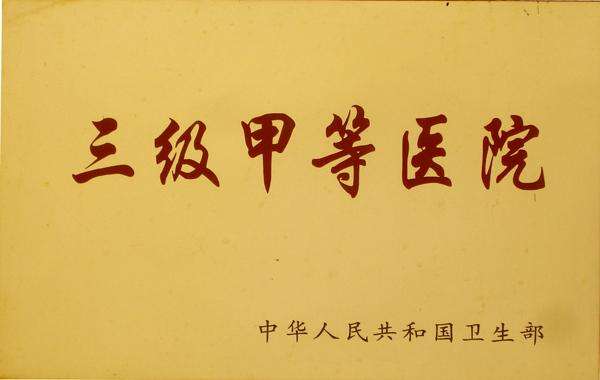 三级甲等医院
中华人民共和国卫生部